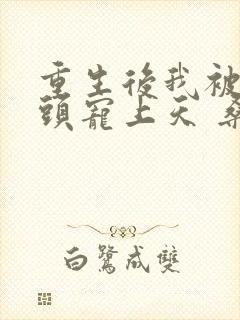 重生後我被
頭寵上天
白鷺成雙